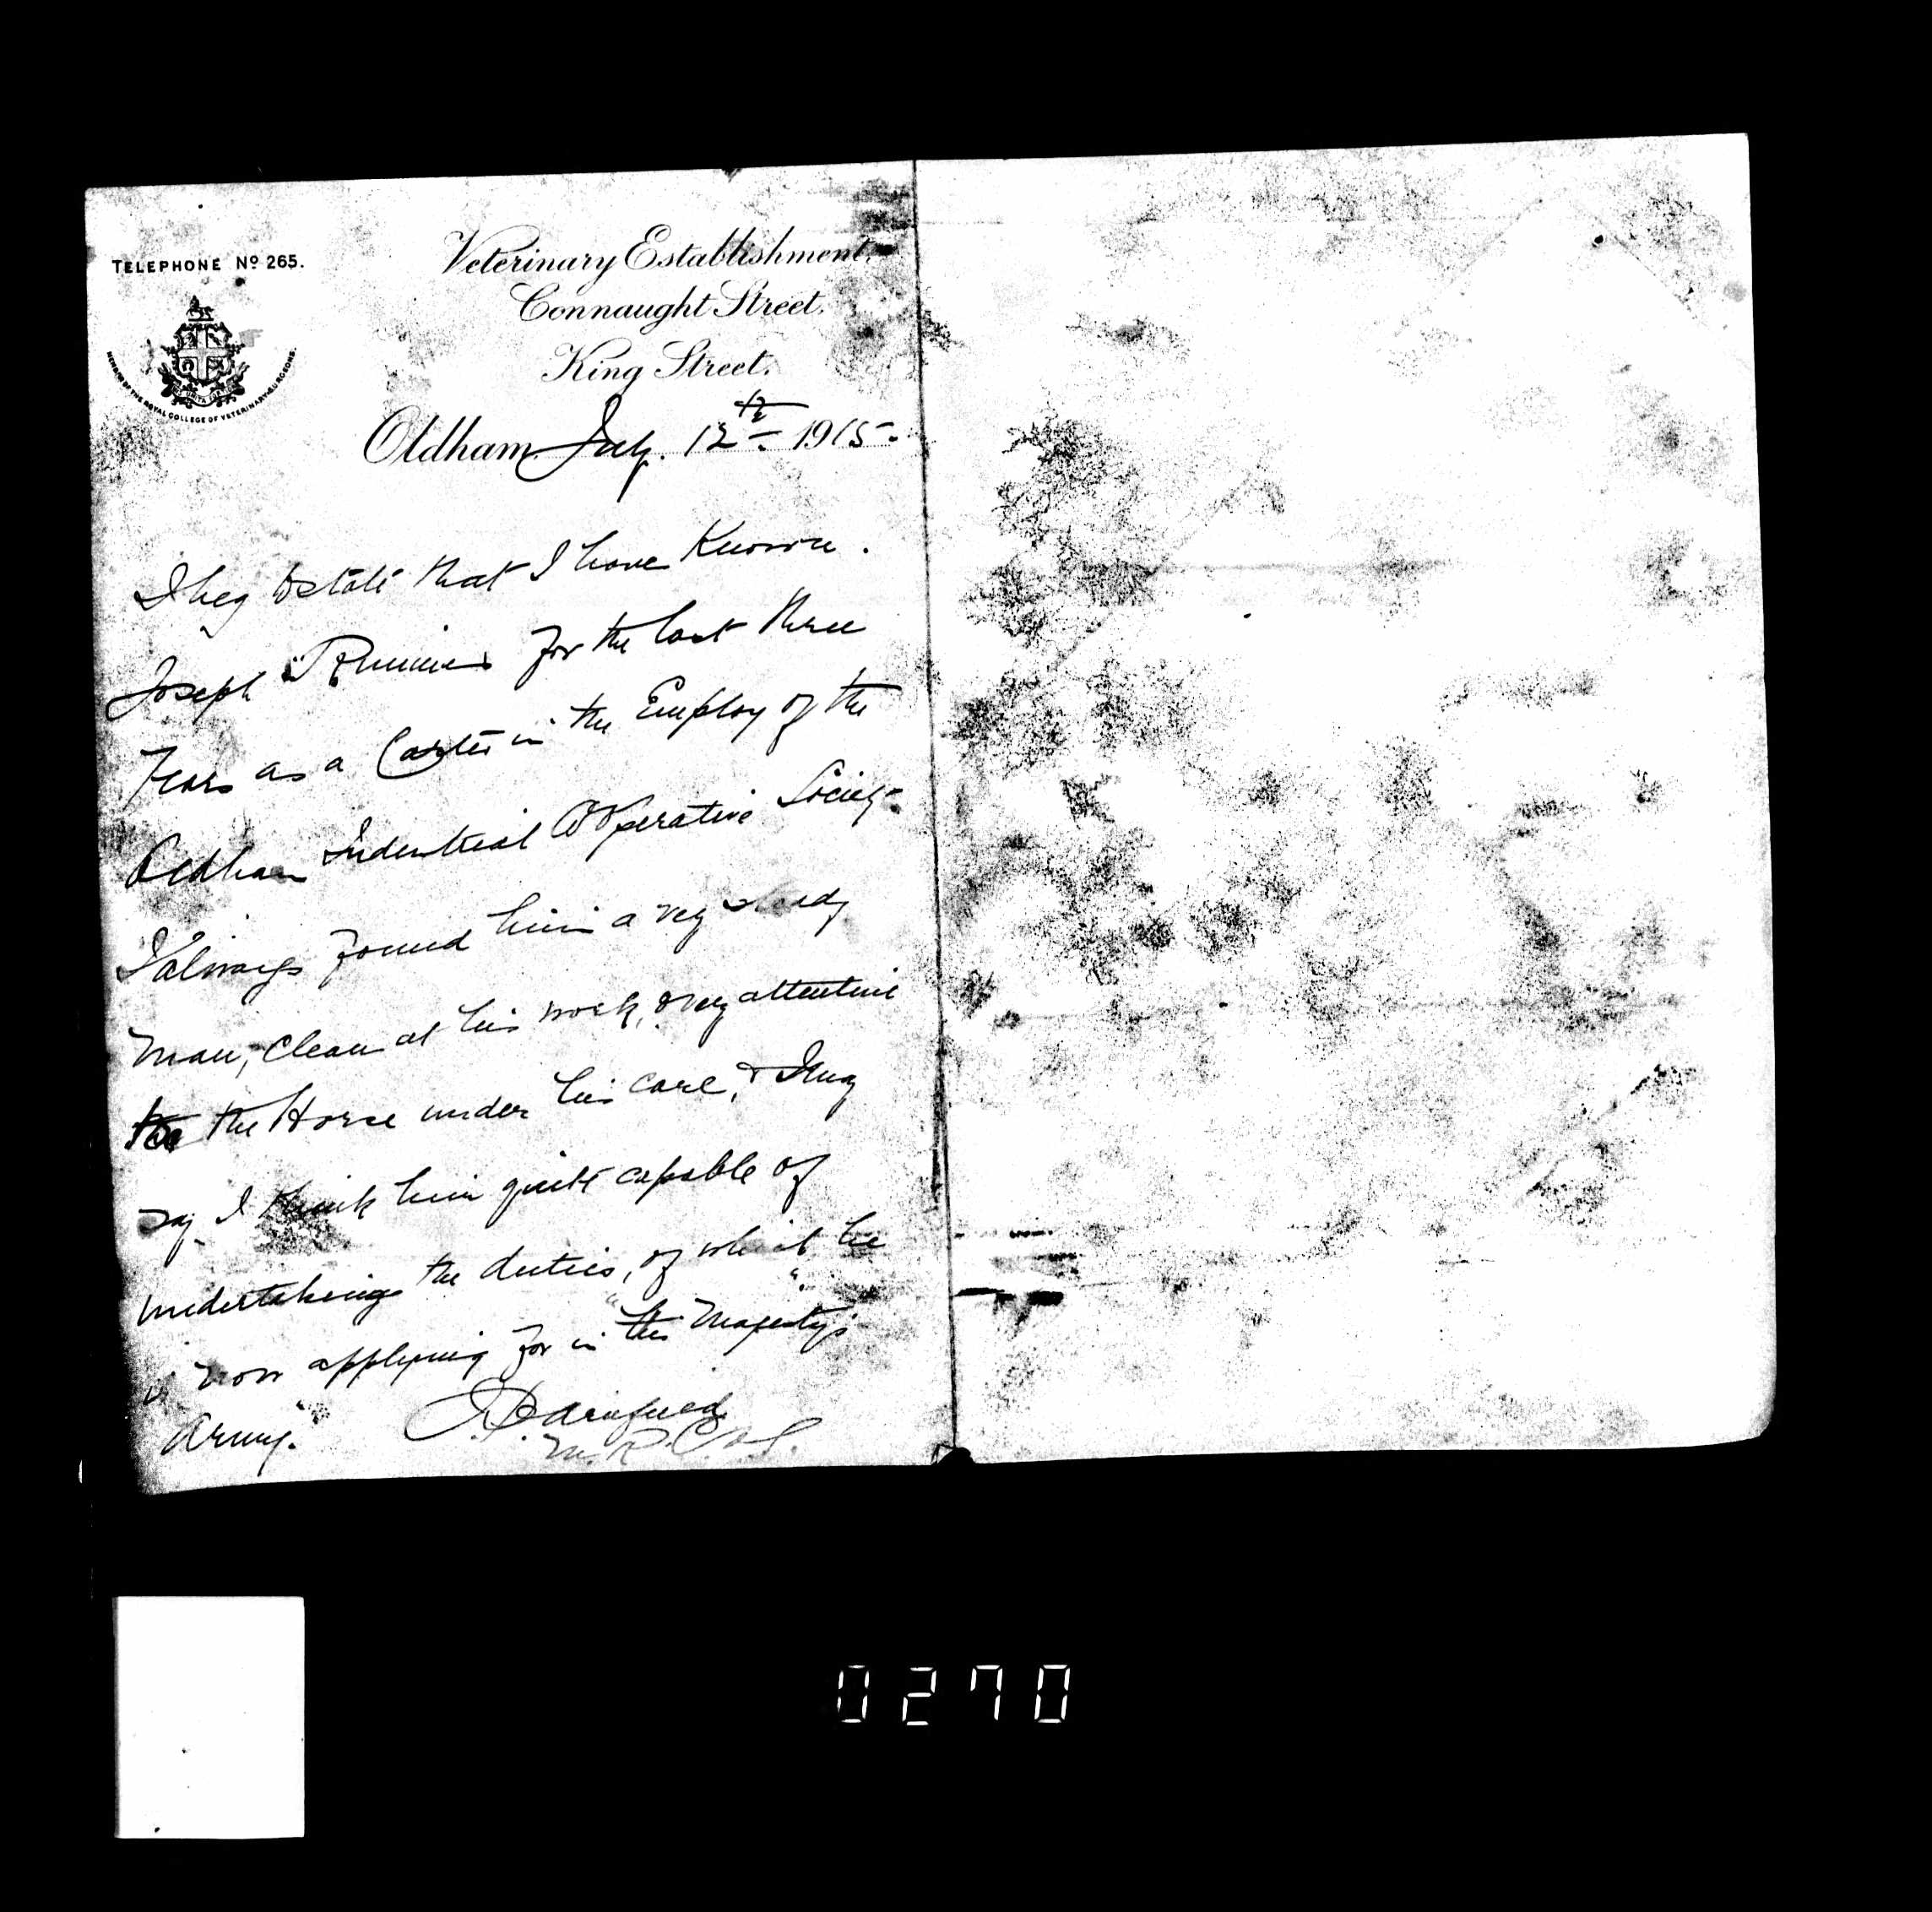 TELEPHONE Nº 265.
MEMBER OF THE ROYAL COLLEGE OF VETERINARY SURGEONS.
Veterinary Establishment,
Connaught Street,
King Street.
Oldham July. 12th 1915.
I beg to state that I have Known.
Joseph for the last three
Years as a Carter in the Employ of the
Oldham Industrial Cooperative Society
I always found him a very steady
Man, Clean at his work, & very attentive
to the Horse under his care, & I may
say I think him quite capable of
undertaking the duties, of which he
is now applying for in "his Majesty's"
"Army."
M.R.C.V.S.
0270